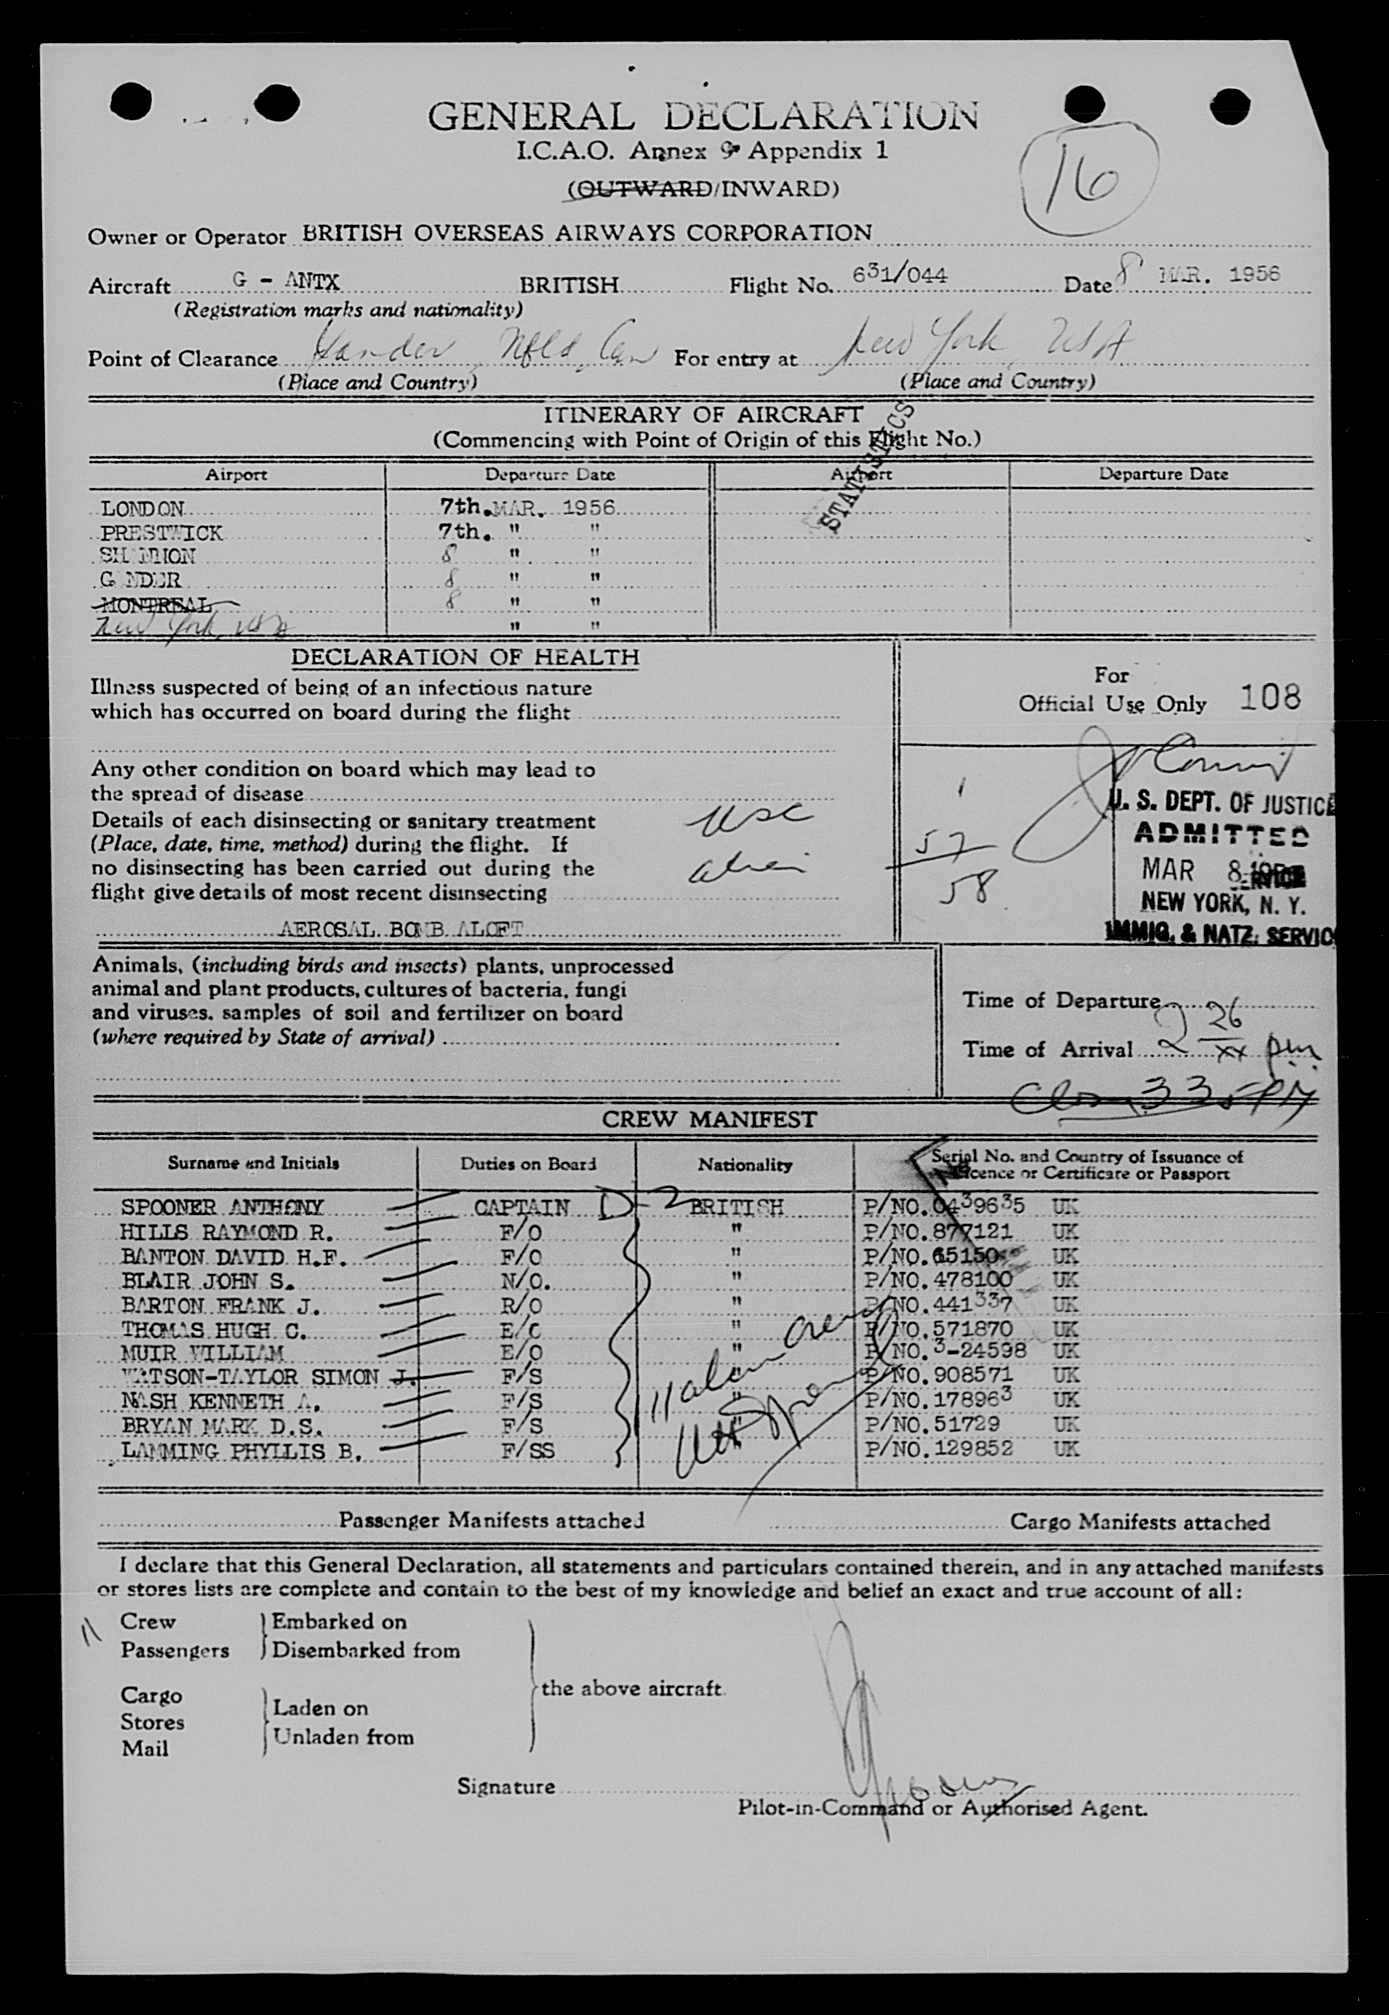 GENERAL DECLARATION
I.C.A.O. Annex 9 Appendix 1
16
(OUTWARD/INWARD)
Owner or Operator BRITISH OVERSEAS AIRWAYS CORPORATION
Aircraft G - ANTX BRITISH Flight No. 631/044 Date 8 MAR. 1956
(Registration marks and nationality)
Point of Clearance Gander, Nfld, Can For entry at New York, USA
(Place and Country) (Place and Country)
ITINERARY OF AIRCRAFT
(Commencing with Point of Origin of this Flight No.)
STATISTICS
Airport Departure Date Airport Departure Date
LONDON 7th. MAR. 1956
PRESTWICK 7th. " "
SHANNON 8 " "
GANDER 8 " "
MONTREAL 8 " "
New York, USA " "
DECLARATION OF HEALTH
Illness suspected of being of an infectious nature
which has occurred on board during the flight
Any other condition on board which may lead to
the spread of disease
Details of each disinsecting or sanitary treatment
(Place, date, time, method) during the flight. If
no disinsecting has been carried out during the
flight give details of most recent disinsecting
AEROSAL BOMB ALOFT
For
Official Use Only 108
1
57
58
U. S. DEPT. OF JUSTICE
ADMITTED
MAR 8
NEW YORK, N. Y.
IMMIG. & NATZ. SERVICE
Animals, (including birds and insects) plants, unprocessed
animal and plant products, cultures of bacteria, fungi
and viruses, samples of soil and fertilizer on board
(where required by State of arrival)
Time of Departure
Time of Arrival 2 26/xx pm
335 PM
CREW MANIFEST
Surname and Initials Duties on Board Nationality Serial No. and Country of Issuance of
Licence or Certificate or Passport
SPOONER ANTHONY CAPTAIN D-2 BRITISH P/NO. 0439635 UK
HILLS RAYMOND R. F/O " P/NO. 877121 UK
BANTON DAVID H.F. F/O " P/NO. 65150 UK
BLAIR JOHN S. N/O. " P/NO. 478100 UK
BARTON FRANK J. R/O " P/NO. 441337 UK
THOMAS HUGH C. E/O " P/NO. 571870 UK
MUIR WILLIAM E/O " P/NO. 3-24598 UK
WATSON-TAYLOR SIMON J. F/S " P/NO. 908571 UK
NASH KENNETH A. F/S " P/NO. 178963 UK
BRYAN MARK D.S. F/S " P/NO. 51729 UK
LAMMING PHYLLIS B. F/SS P/NO. 129852 UK
11 alien crew
Passenger Manifests attached Cargo Manifests attached
I declare that this General Declaration, all statements and particulars contained therein, and in any attached manifests
or stores lists are complete and contain to the best of my knowledge and belief an exact and true account of all:
11 Crew Embarked on
Passengers Disembarked from
the above aircraft.
Cargo
Stores Laden on
Mail Unladen from
Signature
Pilot-in-Command or Authorised Agent.